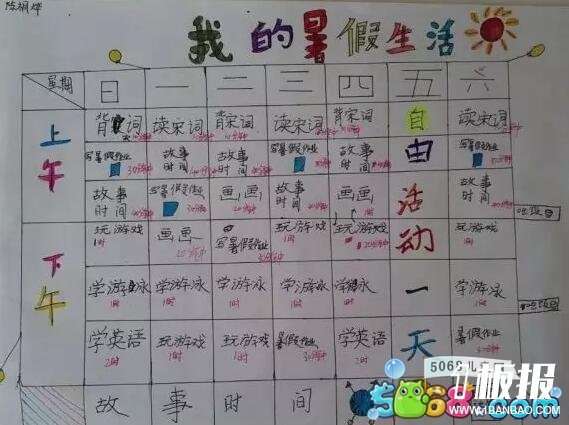 陈栩烨
我的暑假生活
星期 日 一 二 三 四 五 六
上午
背宋词 读宋词 背宋词 读宋词 背宋词 自由活动一天 读宋词
写暑假作业 30分钟 故事时间 故事时间 写暑假作业 故事时间 故事时间
故事时间 写暑假作业 画画 故事时间 画画 故事时间
下午
玩游戏 1时 画画 写暑假作业 玩游戏 1时 玩游戏 玩游戏 1时
学游泳 1时 学游泳 1时 学游泳 1时 学游泳 1时 学游泳 1时 学游泳 1时
学英语 2时 玩游戏 1时 玩游戏 1时 暑假作业 学英语 2时 暑假作业
故事时间
5068儿童网
5068.com
板报
www.1BANBAO.com